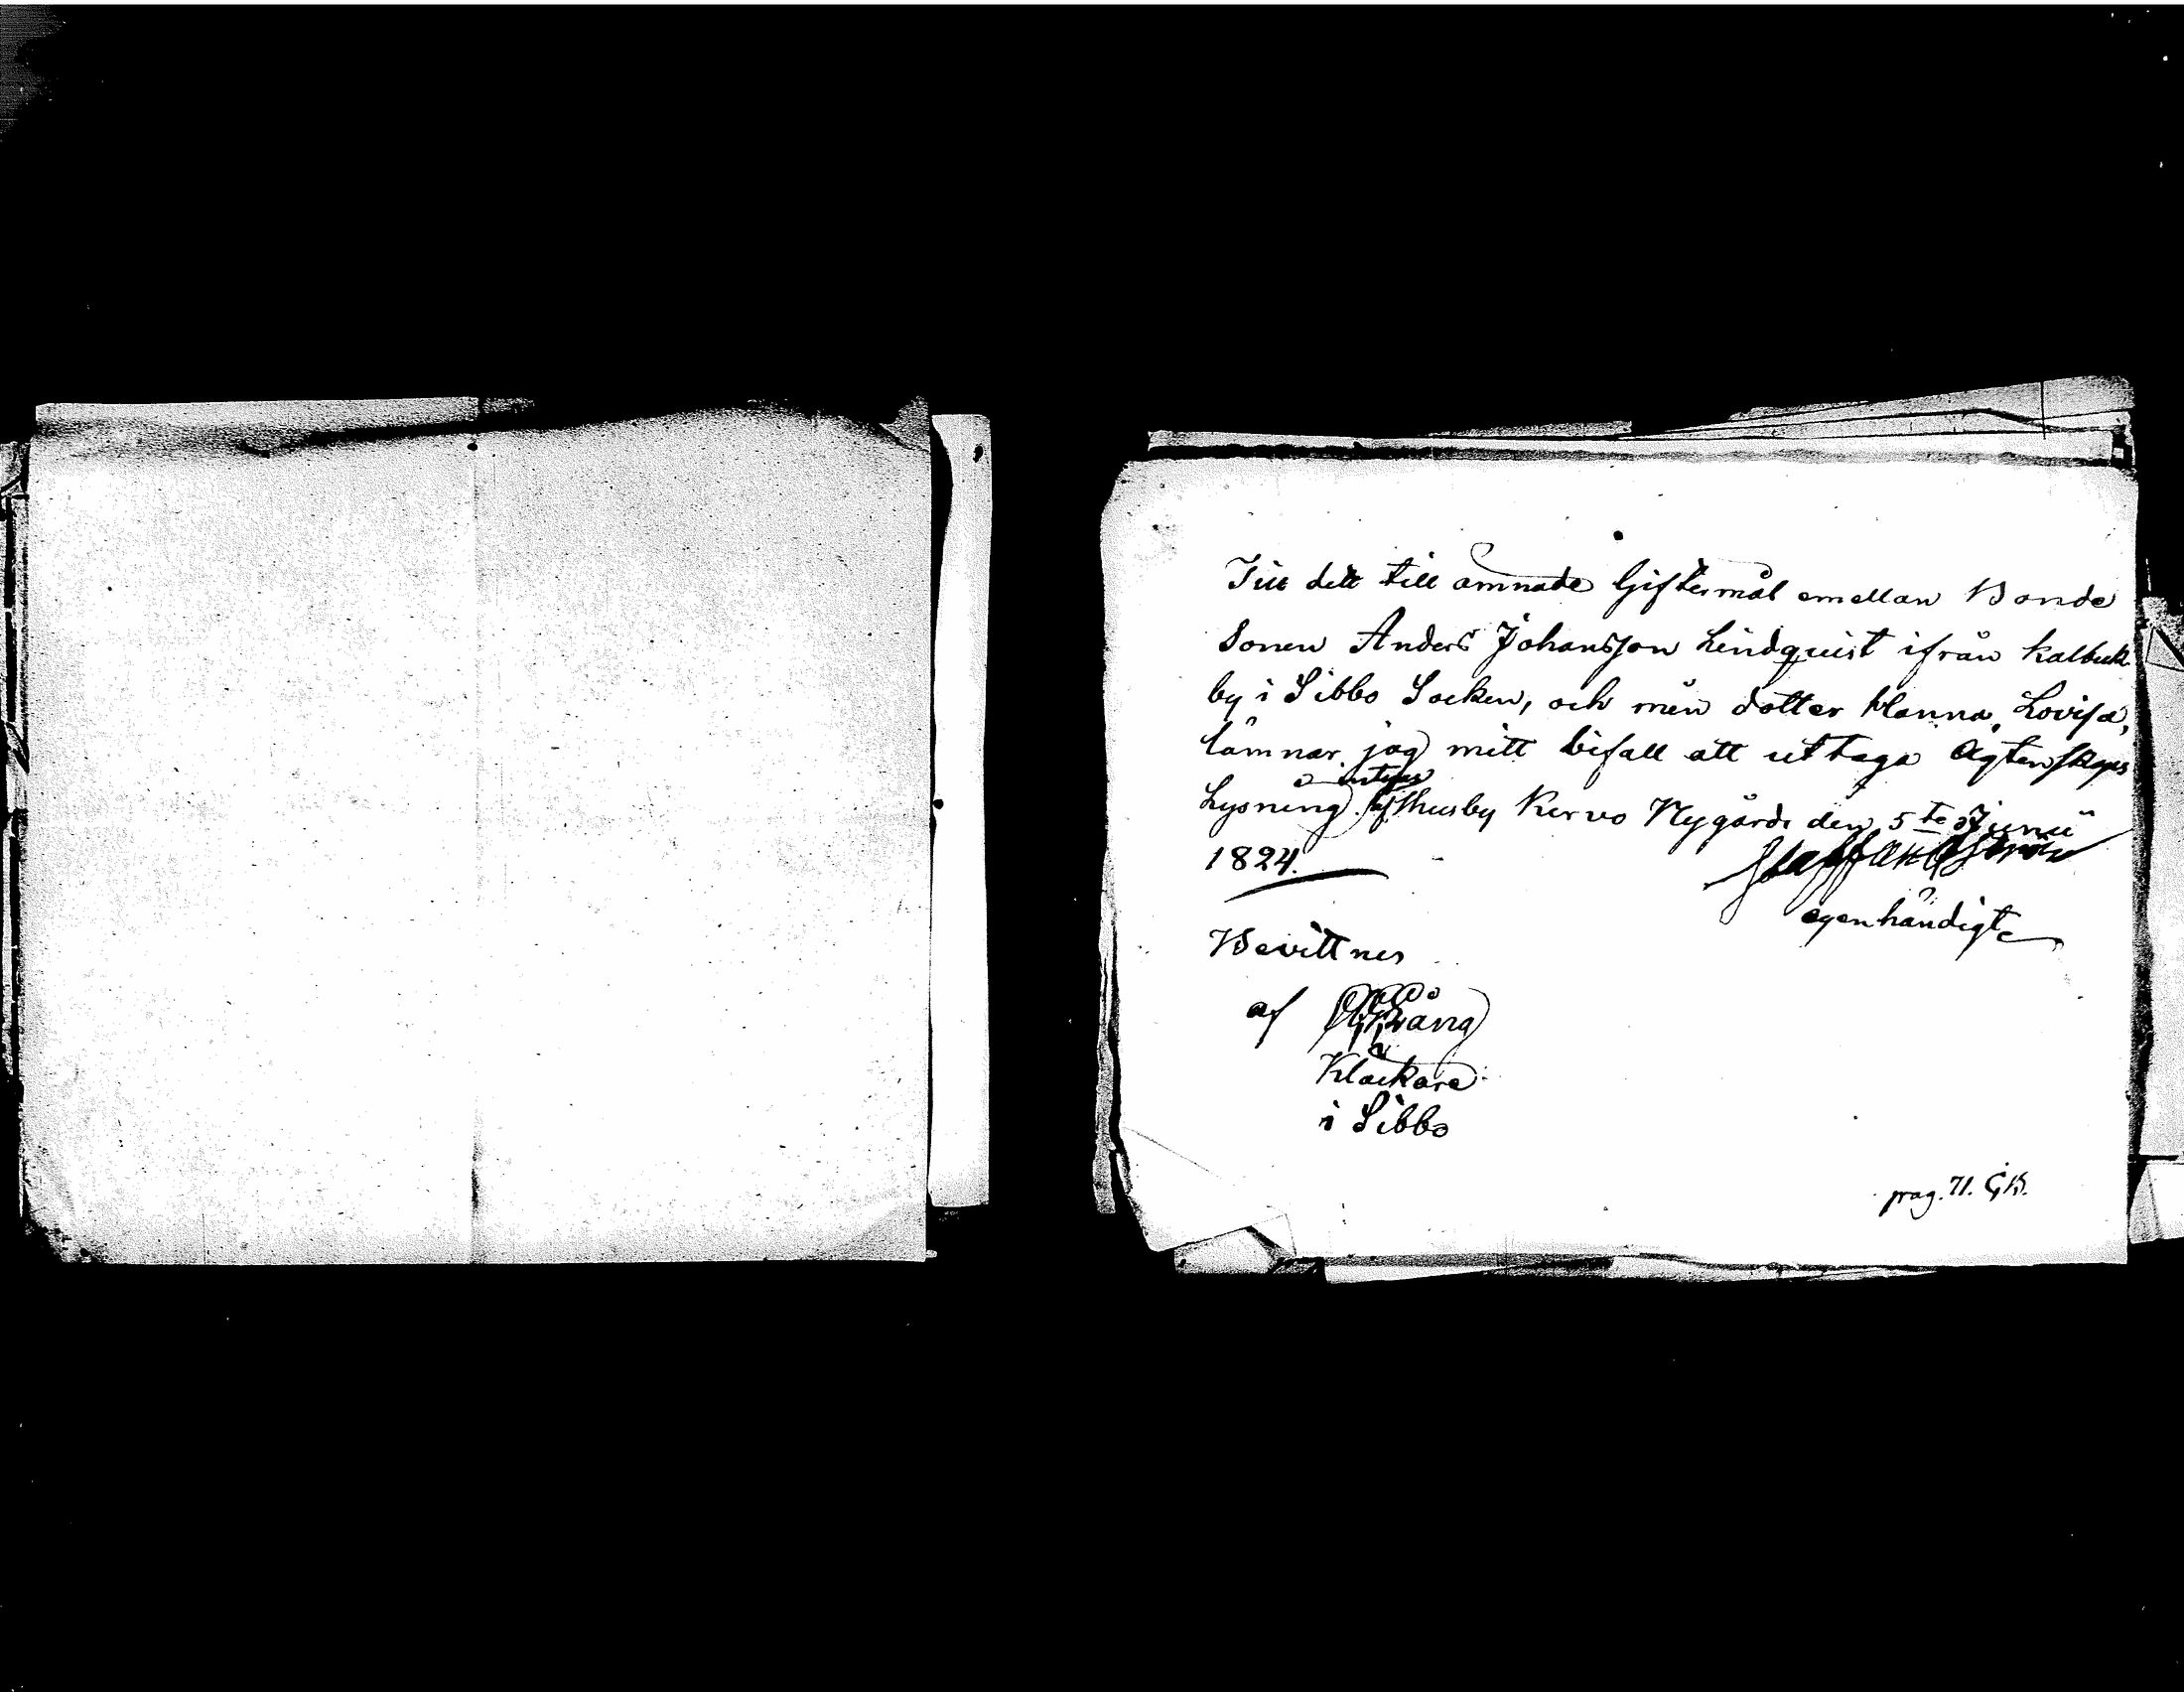 Till dett till ämnade Giftermål emellan Bonde
Sonen Anders Johansson Lindquist ifrån Kalbuck
by i Sibbo Socken, och min dotter Hanna Lovisa,
lämnar jag mitt bifall att uttaga Ägtenskaps
Lysning intygas Husby Kervo Nygårds den 5te Junii
1824.
Staffan
egenhändigt
Bevittnes
af
Klåckare
i Sibbo
prag. 71. G,B.